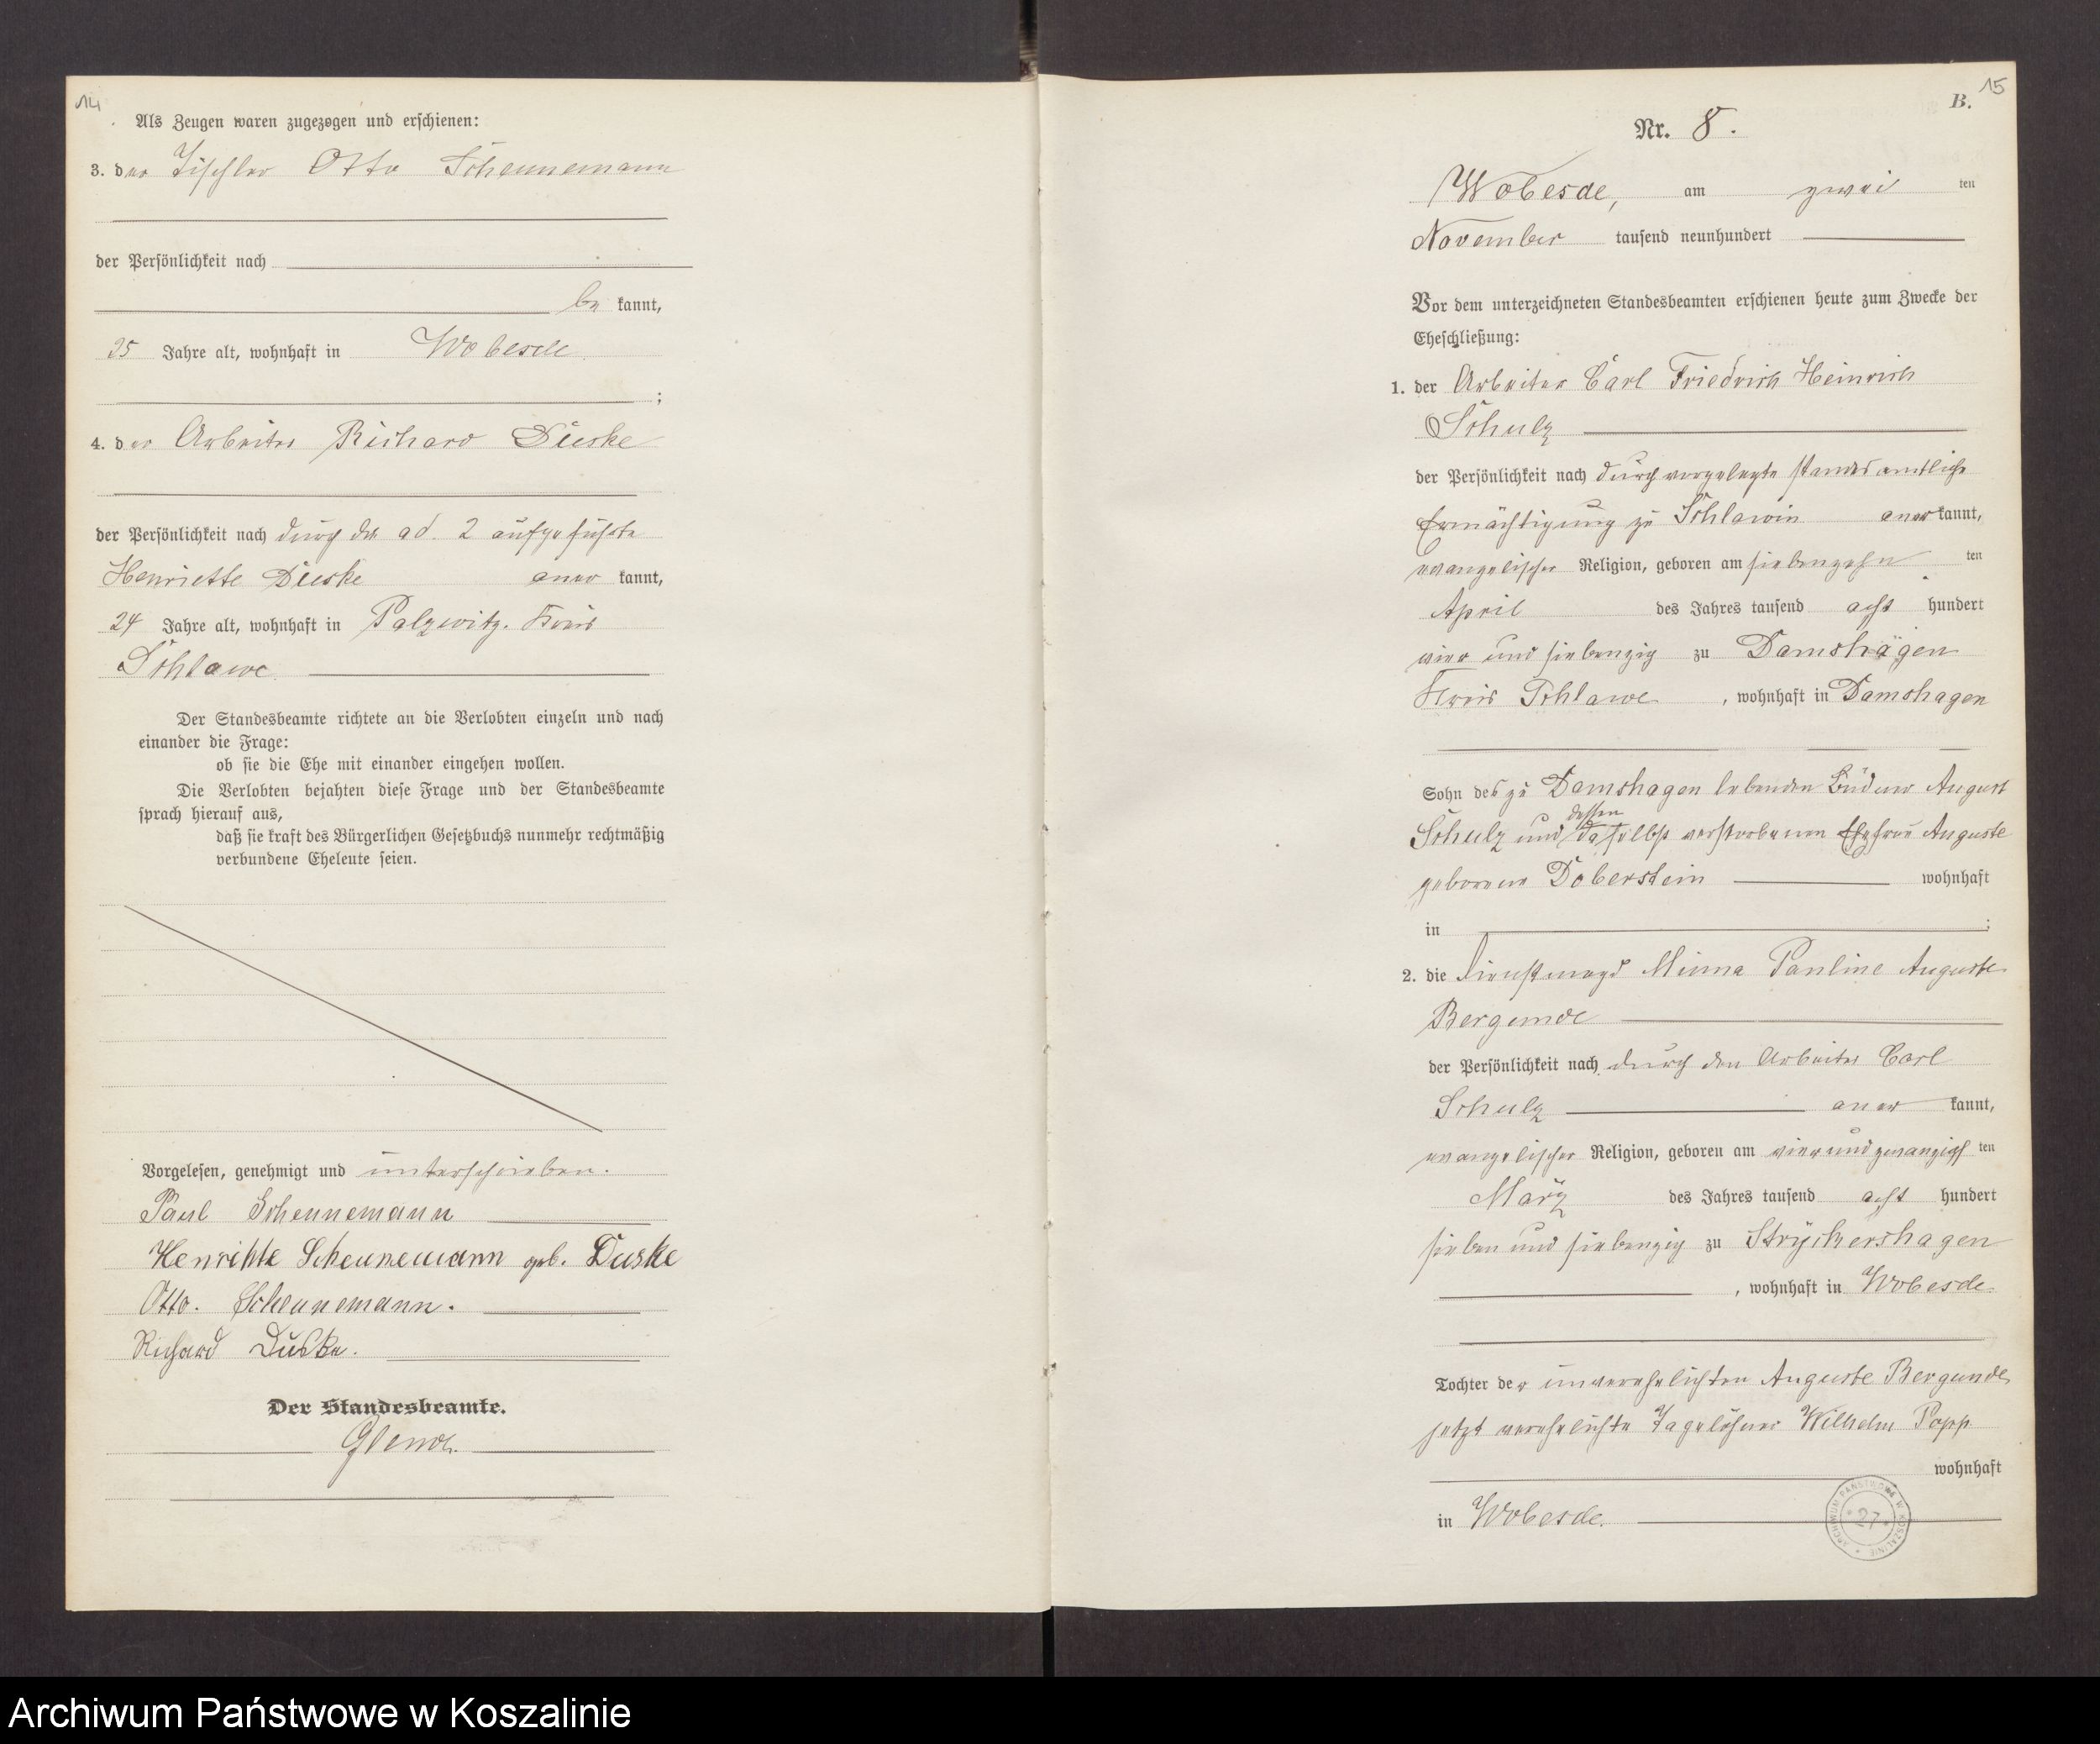 14
Als Zeugen waren zugezogen und erschienen:
3. der Tischler Otto Scheunemann
der Persönlichkeit nach
be kannt,
25 Jahre alt, wohnhaft in Wobesde
;
4. der Arbeiter Richard Duske
der Persönlichkeit nach durch die ad. 2 aufgeführte
Henriette Duske aner kannt,
24 Jahre alt, wohnhaft in Palzwitz. Kreis
Schlawe
Der Standesbeamte richtete an die Verlobten einzeln und nach
einander die Frage:
ob sie die Ehe mit einander eingehen wollen.
Die Verlobten bejahten diese Frage und der Standesbeamte
sprach hierauf aus,
daß sie kraft des Bürgerlichen Gesetzbuchs nunmehr rechtmäßig
verbundene Eheleute seien.
Vorgelesen, genehmigt und unterschrieben.
Paul Scheunemann
Henriette Scheunemann geb. Duske
Otto. Scheunemann.
Richard Duske.
Der Standesbeamte.
15
B.
Nr. 8.
Wobesde, am zwei ten
November tausend neunhundert
Vor dem unterzeichneten Standesbeamten erschienen heute zum Zwecke der
Eheschließung:
1. der Arbeiter Carl Friedrich Heinrich
Schulz
der Persönlichkeit nach durch vorgelegte standesamtliche
Ermächtigung zu Schlawin aner kannt,
evangelischer Religion, geboren am siebenzehn ten
April des Jahres tausend acht hundert
vier und siebenzig zu Damshagen
Kreis Schlawe, wohnhaft in Damshagen
Sohn des zu Damshagen lebenden Büdner August
Schulz und dessen daselbst verstorbenen Ehefrau Auguste
geborene Doberstein wohnhaft
in ;
2. die Dienstmagd Minna Pauline Auguste
Bergunde
der Persönlichkeit nach durch den Arbeiter Carl
Schulz aner kannt,
evangelischer Religion, geboren am vierundzwanzigsten
März des Jahres tausend acht hundert
sieben und siebenzig zu Stryckershagen
, wohnhaft in Wobesde
Tochter der unverehelichten Auguste Bergunde,
jetzt verehelichte Tagelöhner Wilhelm Papp
wohnhaft
in Wobesde.
ARCHIWUM PAŃSTWOWE W KOSZALINIE
27
Archiwum Państwowe w Koszalinie